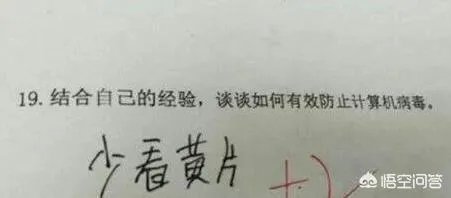 19. 结合自己的经验，谈谈如何有效防止计算机病毒。
少看黄片
悟空问答